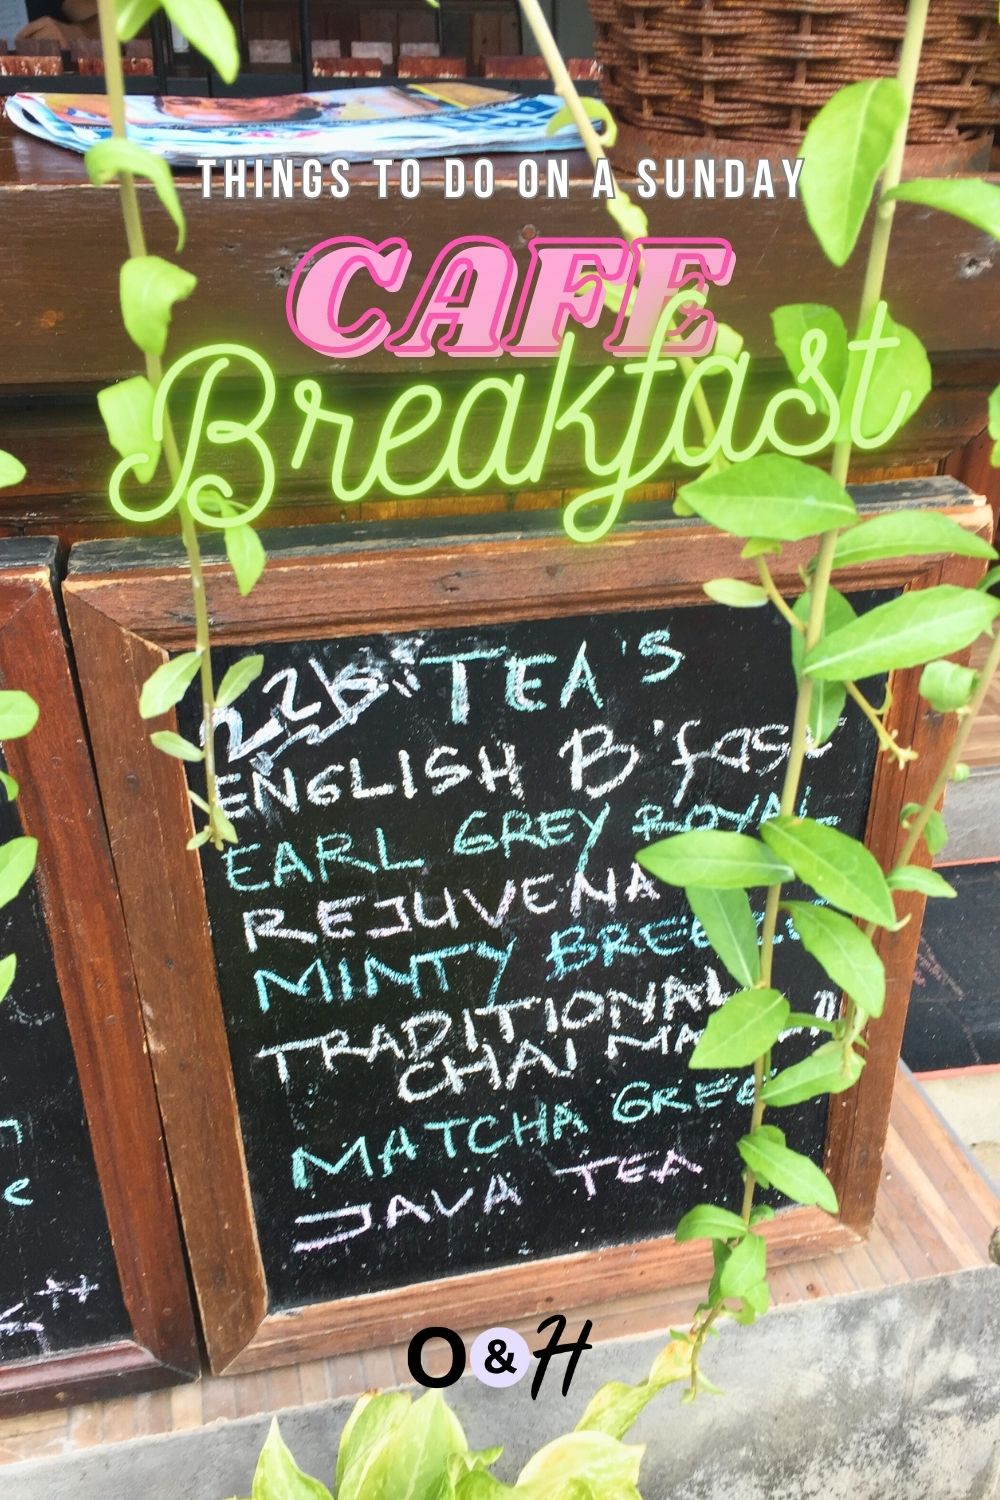 THINGS TO DO ON A SUNDAY
CAFE
Breakfast
22k TEA'S
ENGLISH B'fast
EARL GREY ROYAL
REJUVENA
MINTY BREEZE
TRADITIONAL
CHAI
MATCHA GREE
JAVA TEA
O & H